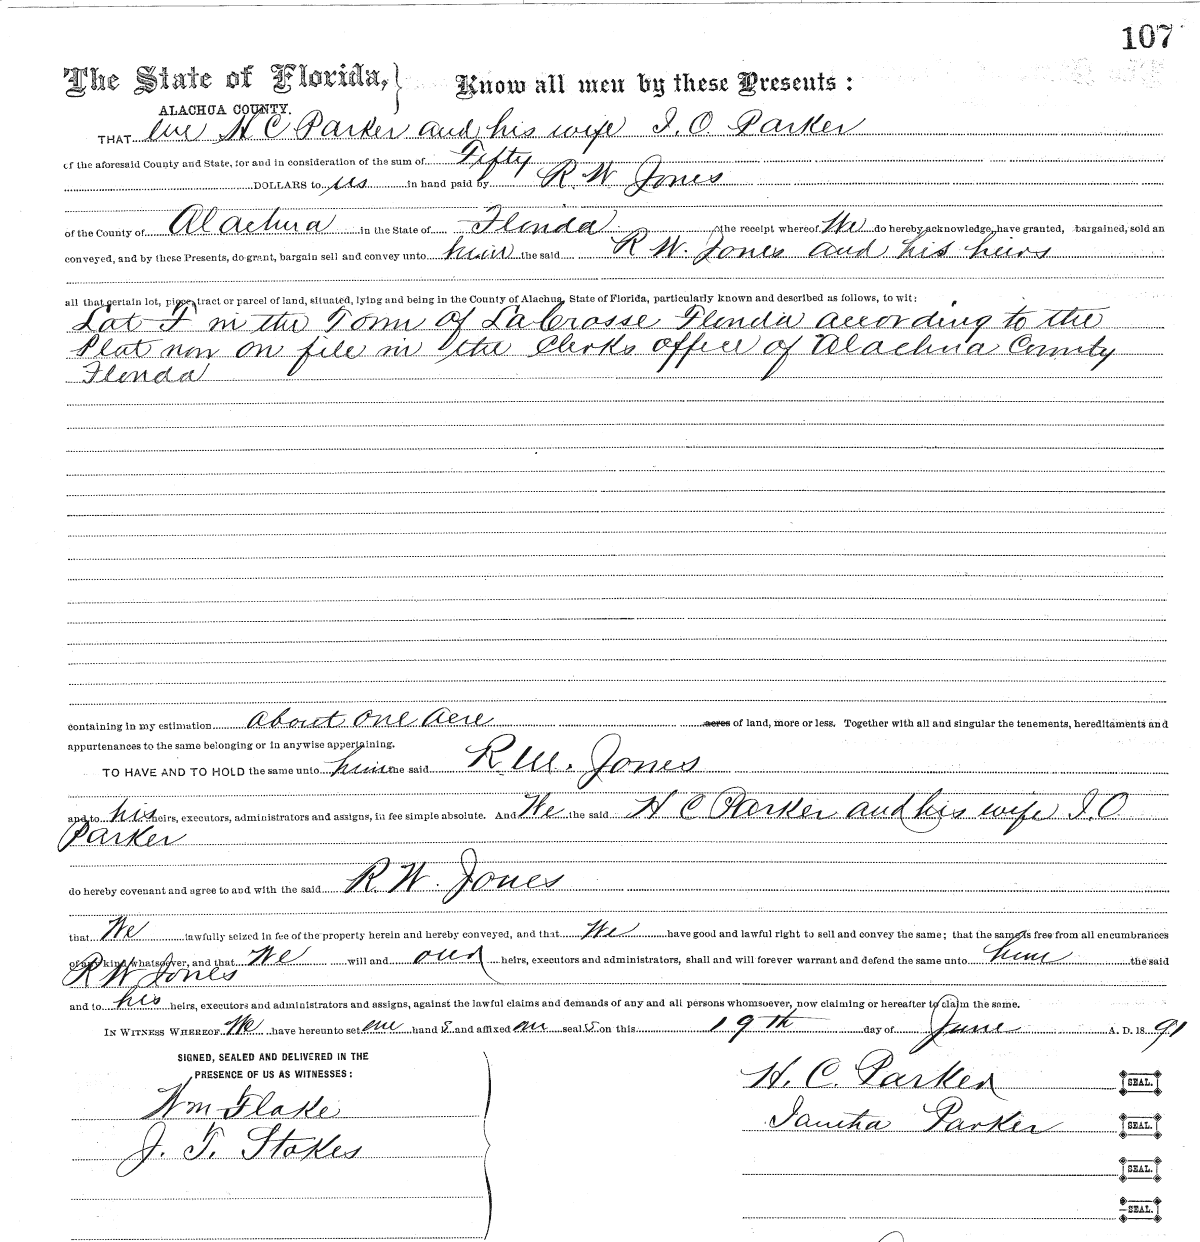 107
The State of Florida, } Know all men by these Presents :
ALACHUA COUNTY.
THAT We H C Parker and his wife I. O Parker
of the aforesaid County and State, for and in consideration of the sum of Fifty
DOLLARS to us in hand paid by R. W Jones
of the County of Alachua in the State of Florida the receipt whereof We do hereby acknowledge, have granted, bargained, sold an
conveyed, and by these Presents, do grant, bargain sell and convey unto him the said R W. Jones and his heirs
all that certain lot, piece, tract or parcel of land, situated, lying and being in the County of Alachua, State of Florida, particularly known and described as follows, to wit:
Lot F in the Town of LaCrosse Florida according to the
Plat now on file in the Clerks office of Alachua County
Florida
containing in my estimation about one acre acres of land, more or less. Together with all and singular the tenements, hereditaments and
appurtenances to the same belonging or in anywise appertaining.
TO HAVE AND TO HOLD the same unto him the said R W. Jones
and to his heirs, executors, administrators and assigns, in fee simple absolute. And We the said H C Parker and his wife I. O
Parker
do hereby covenant and agree to and with the said R. W. Jones
that We lawfully seized in fee of the property herein and hereby conveyed, and that We have good and lawful right to sell and convey the same; that the same is free from all encumbrances
of any kind whatsoever, and that We will and our heirs, executors and administrators, shall and will forever warrant and defend the same unto him the said
R W Jones
and to his heirs, executors and administrators and assigns, against the lawful claims and demands of any and all persons whomsoever, now claiming or hereafter to claim the same.
IN WITNESS WHEREOF We have hereunto set our hand s and affixed our seal s on this 19th day of June A. D. 18 91
SIGNED, SEALED AND DELIVERED IN THE
PRESENCE OF US AS WITNESSES:
H. C. Parker SEAL.
Wm Flake
Iantha Parker SEAL.
J. T. Stokes
SEAL.
SEAL.